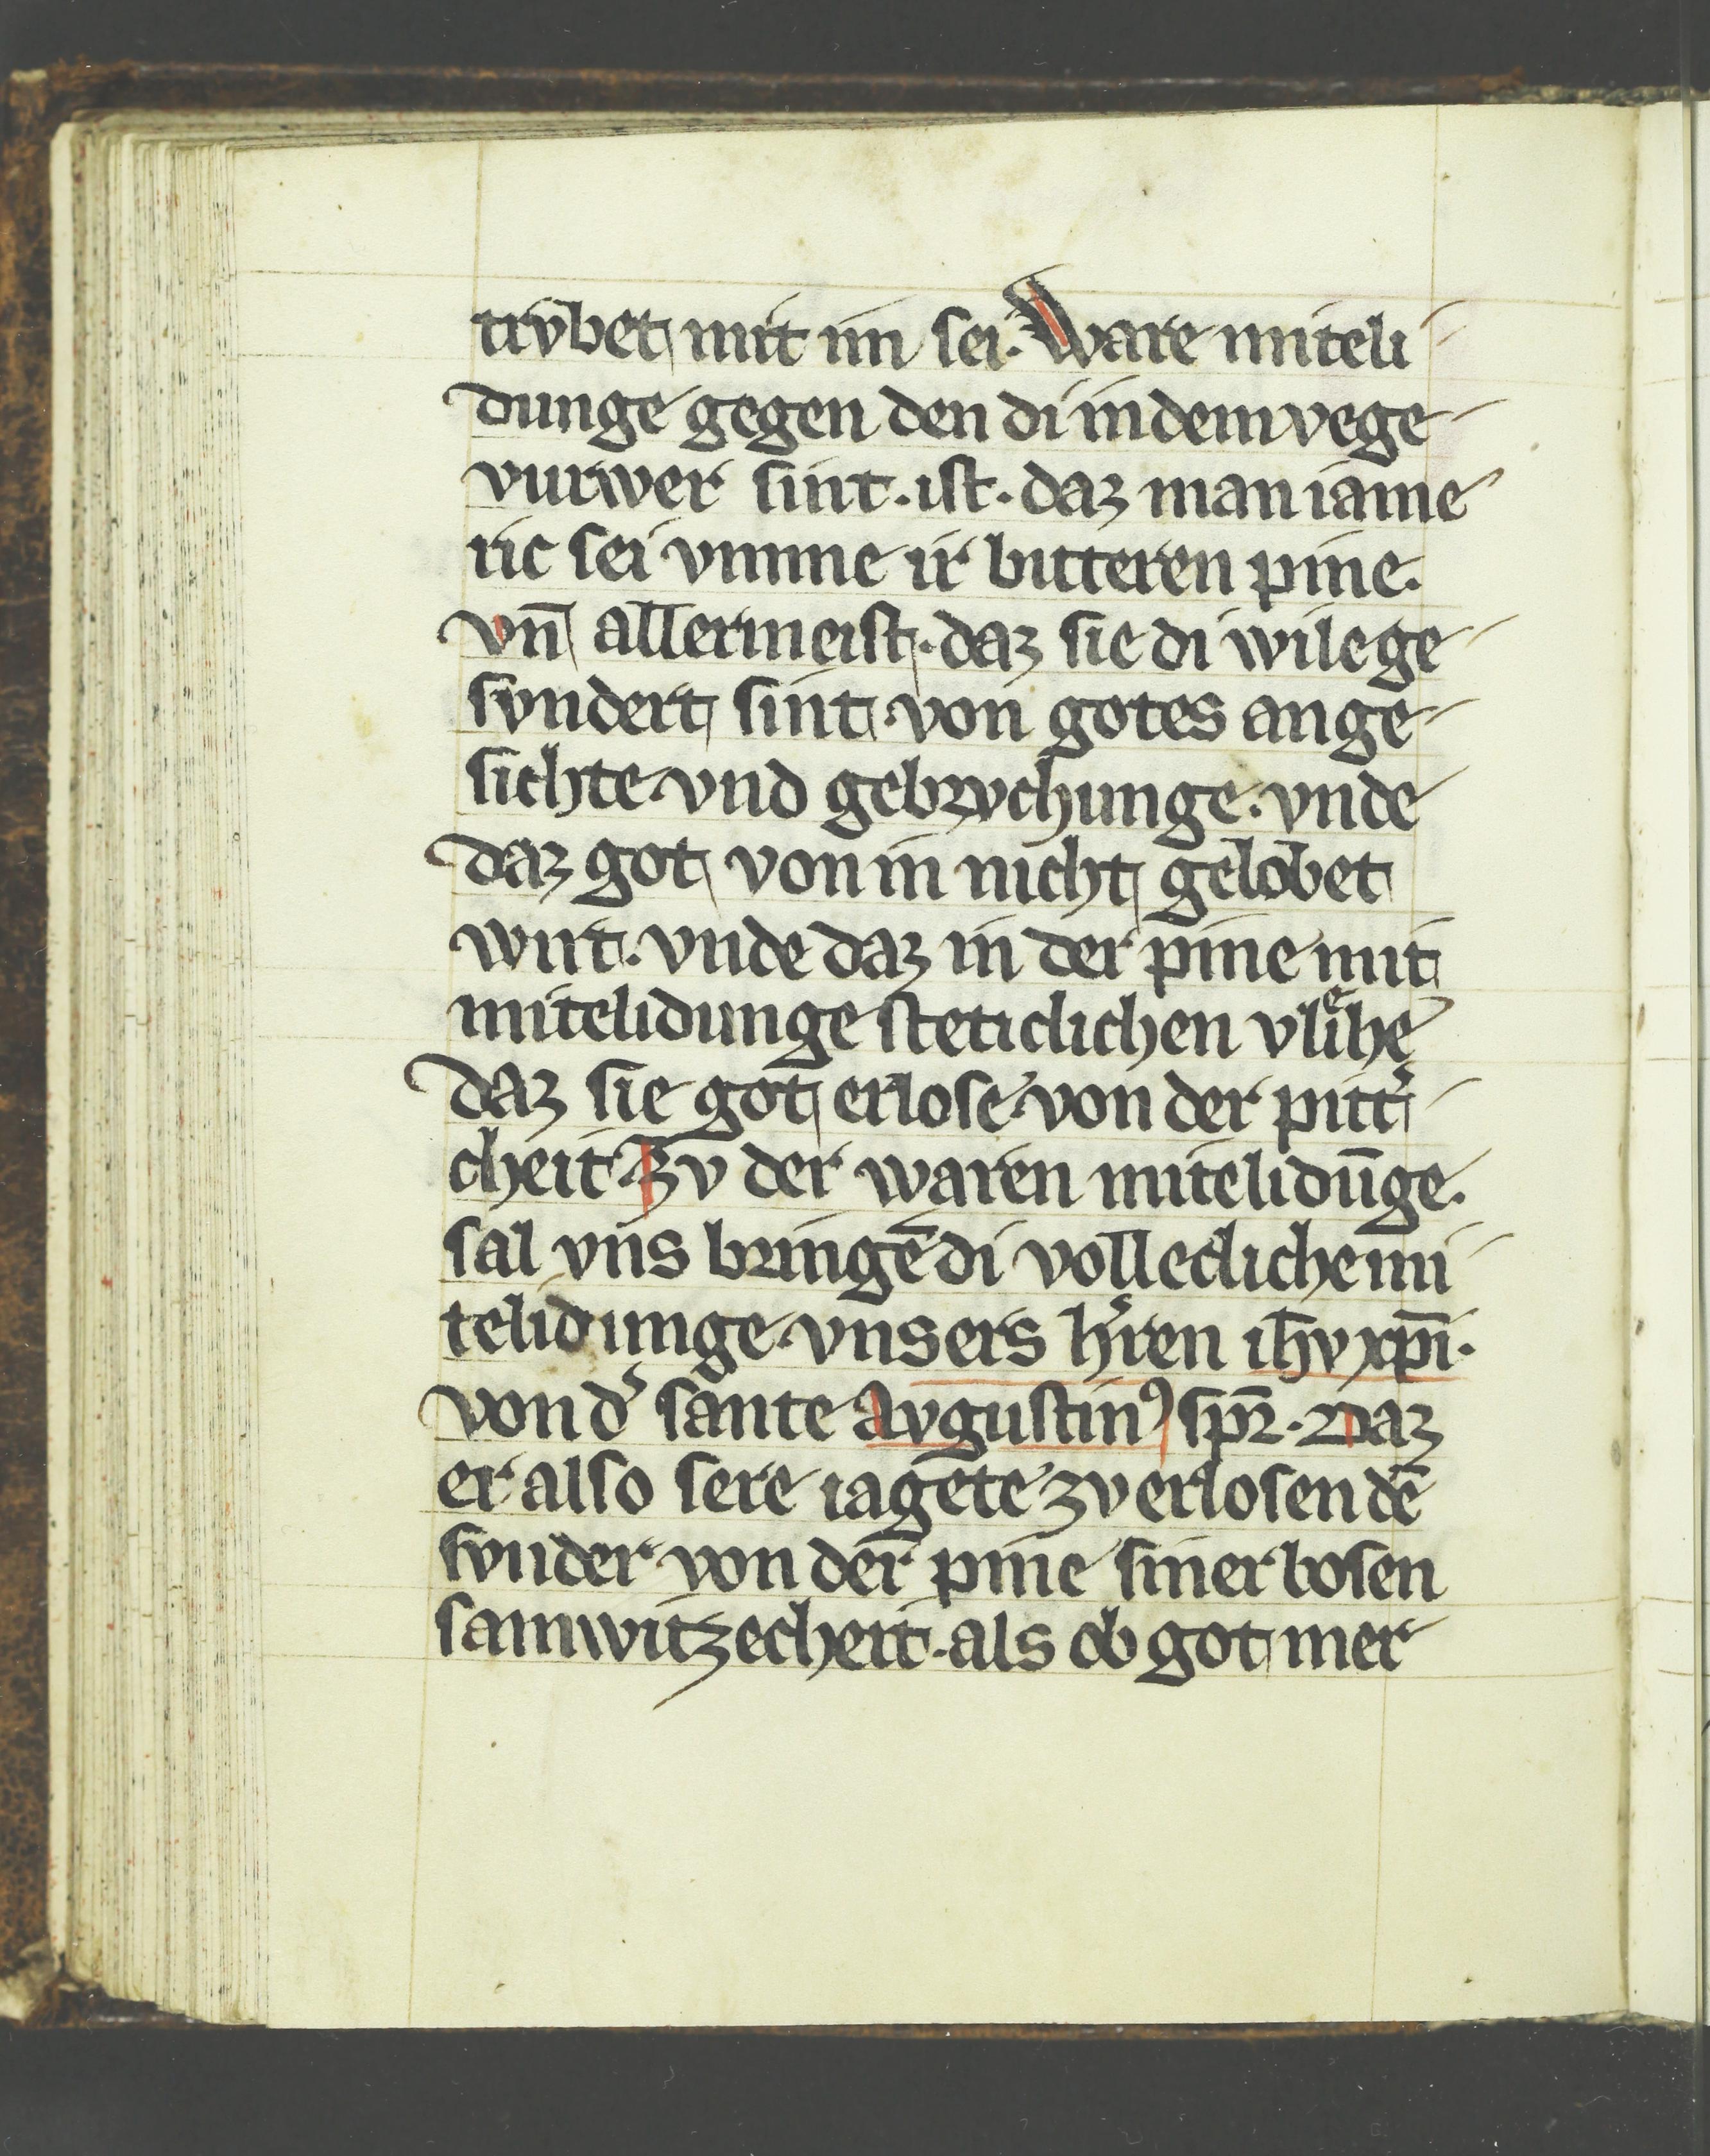 trvbet mit im sei. Ware miteli
dunge gegen den di in dem vege
vurwer sint. ist. daz man iame
ric sei vmme ir bitteren pine.
vn̄ allermeist. daz sie di wile ge
svndert sint von gotes ange
sichte vnd gebrvchunge. vnde
daz got von in nicht gelobet
wirt. vnde daz in der pine mit
mitelidunge steticlichen vliͤhe
daz sie got erlose von der pitt͛
cheit. Zv der waren mitelidūge.
sal vns bringē di vollecliche mi
telidunge vnsers h͛ren ih̄v xp̄i.
von d͛ sante Avgustinꝰ spr̄. Daz
er also sere iagete zv erlosen dē
svnder von der pine siner bosen
samwitzecheit. als ob got mer